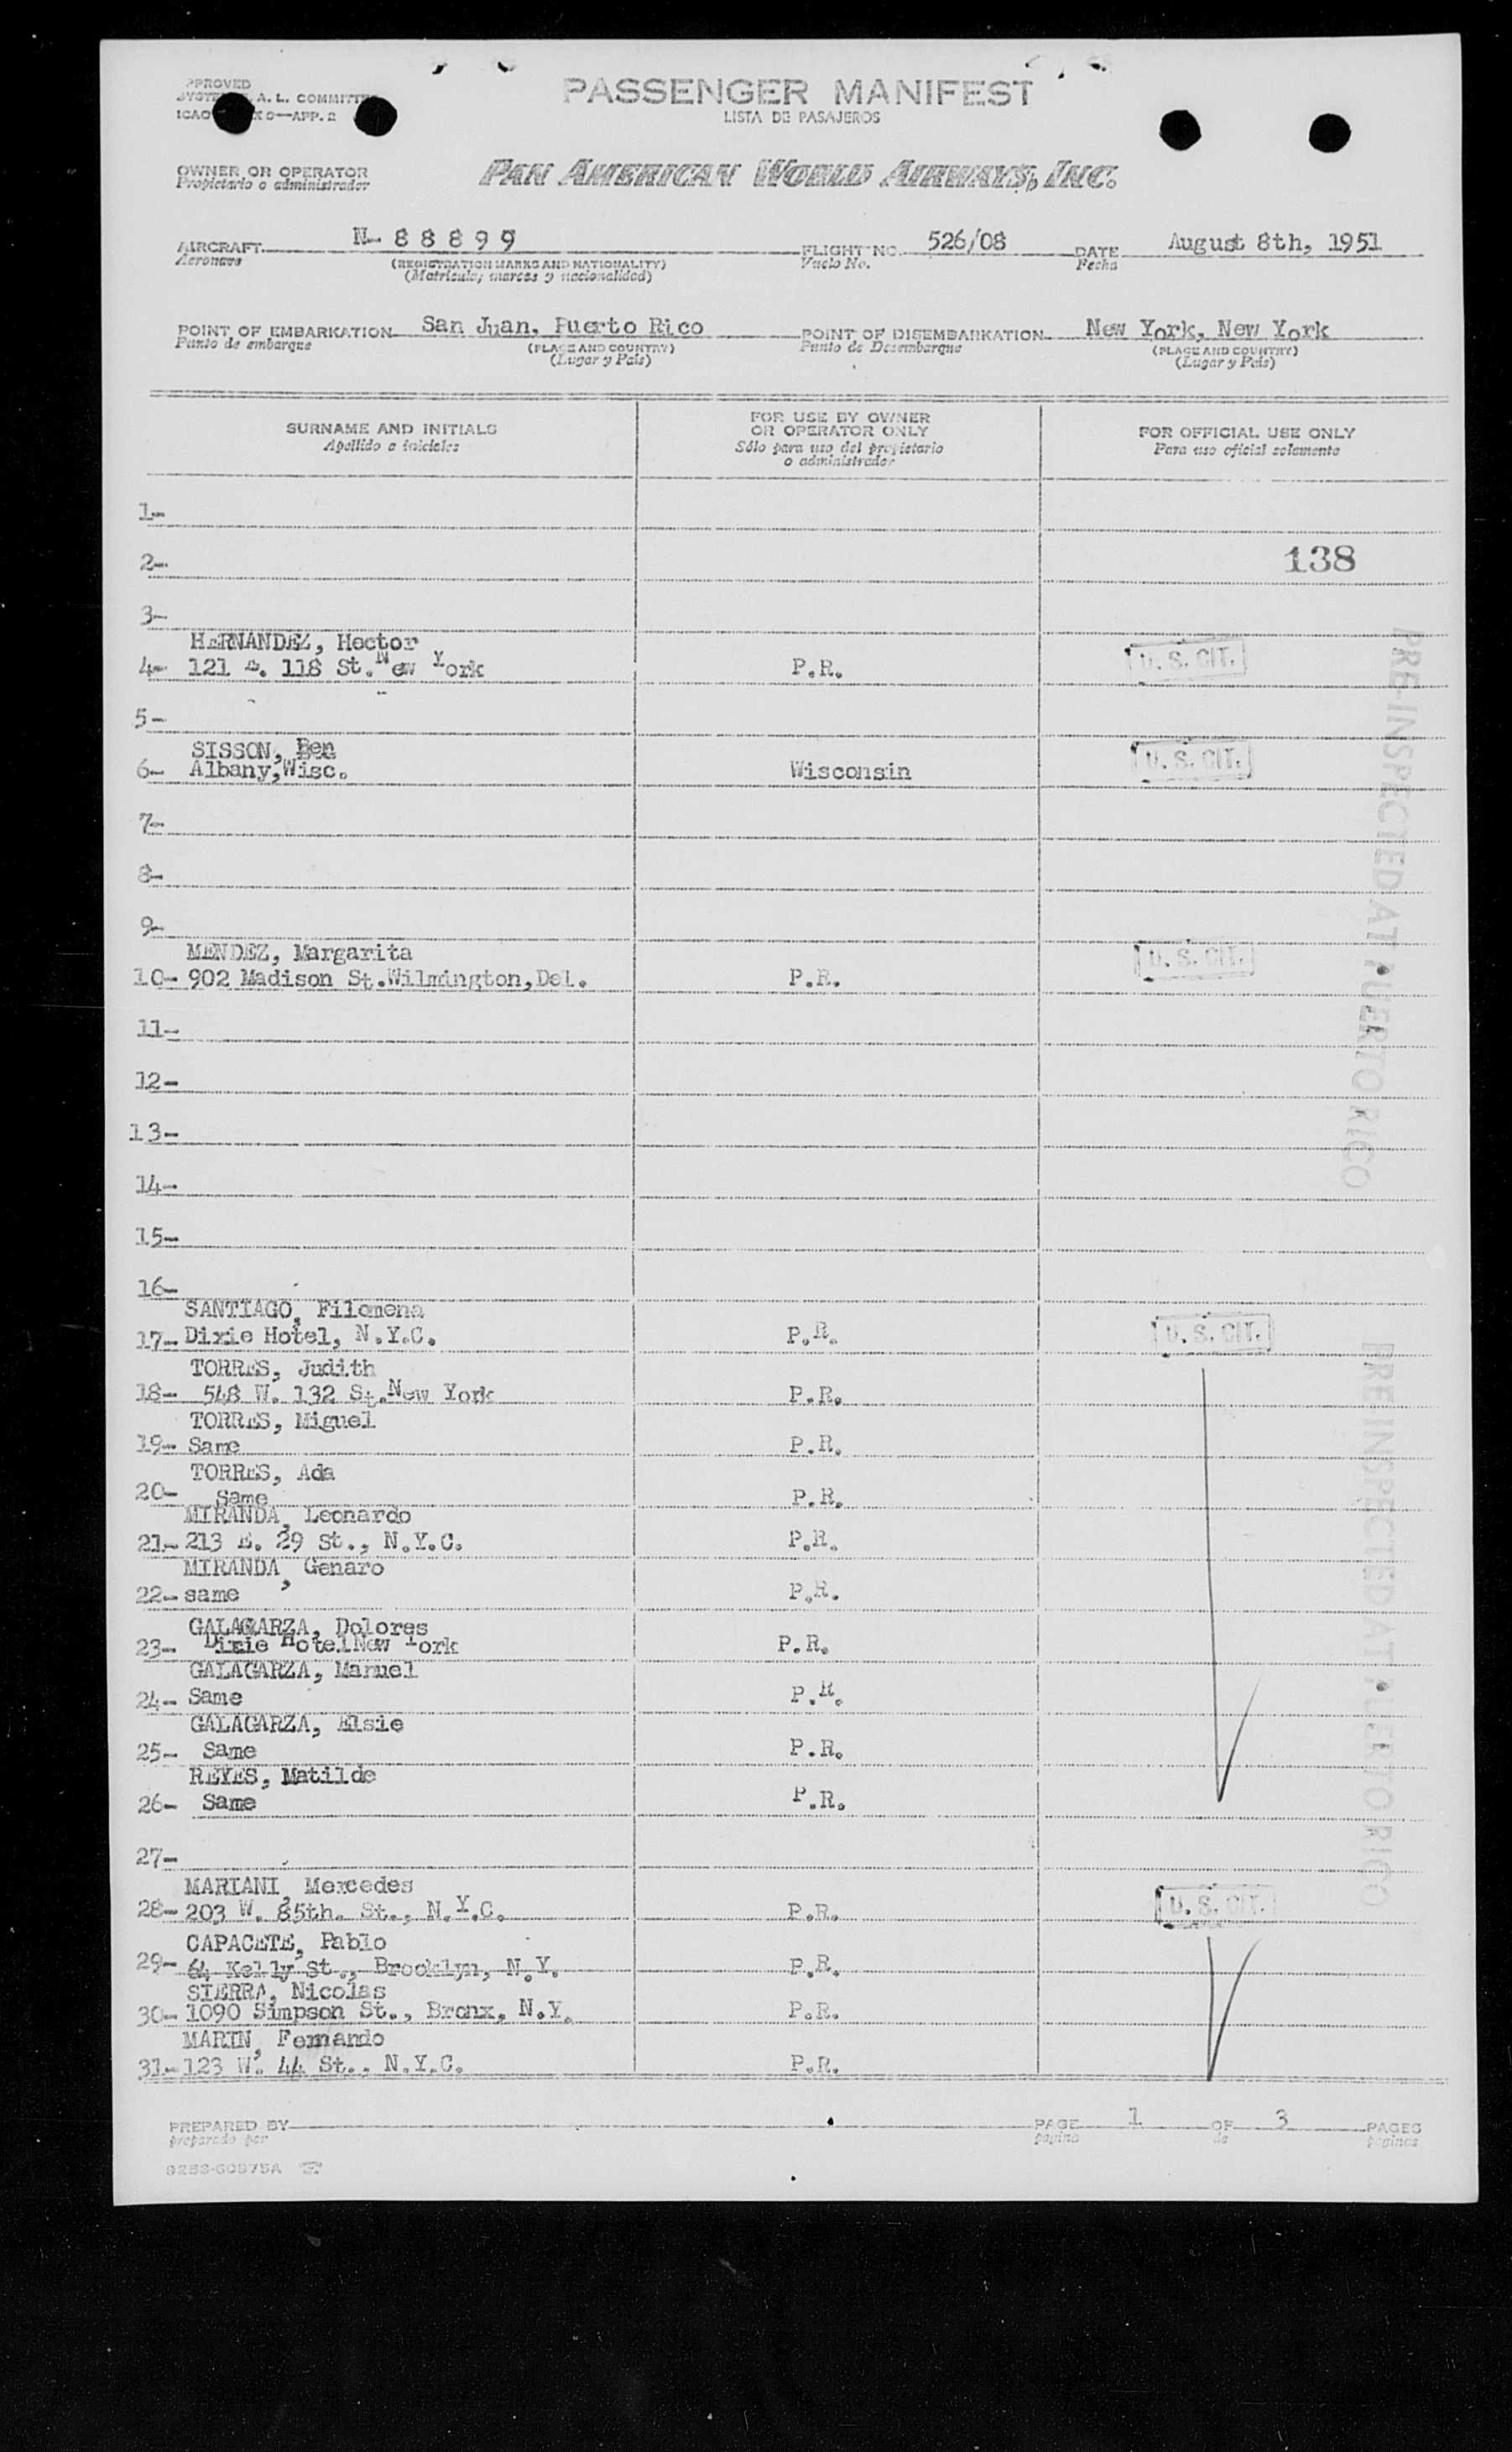 APPROVED
A. L. COMMITTEE
ICAO
APP. 2
PASSENGER MANIFEST
LISTA DE PASAJEROS
OWNER OR OPERATOR
Propietario o administrador
PAN AMERICAN WORLD AIRWAYS, INC.
AIRCRAFT N- 88899 FLIGHT NO. 526/08 DATE August 8th, 1951
Aeronave (REGISTRATION MARKS AND NATIONALITY) Vuelo No. Fecha
(Matricula, marcas y nacionalidad)
POINT OF EMBARKATION San Juan, Puerto Rico POINT OF DISEMBARKATION New York, New York
Punto de embarque (PLACE AND COUNTRY) Punto de Desembarque (PLACE AND COUNTRY)
(Lugar y País) (Lugar y País)
SURNAME AND INITIALS
Apellido e iniciales
FOR USE BY OWNER
OR OPERATOR ONLY
Sólo para uso del propietario
o administrador
FOR OFFICIAL USE ONLY
Para uso oficial solamente
1-
2- 138
3-
HERNANDEZ, Hector
4- 121 E. 118 St. New York P.R. U. S. CIT.
5-
SISSON, Ben
6- Albany, Wisc. Wisconsin U. S. CIT.
7-
8-
9-
MENDEZ, Margarita
10- 902 Madison St. Wilmington, Del. P.R. U. S. CIT.
11-
12-
13-
14-
15-
16-
SANTIAGO, Filomena
17- Dixie Hotel, N.Y.C. P.R. U. S. CIT.
TORRES, Judith
18- 548 W. 132 St. New York P.R.
TORRES, Miguel
19- Same P.R.
TORRES, Ada
20- Same P.R.
MIRANDA, Leonardo
21- 213 E. 29 St., N.Y.C. P.R.
MIRANDA, Genaro
22- same P.R.
GALAGARZA, Dolores
23- Dixie Hotel New York P.R.
GALAGARZA, Manuel
24- Same P.R.
GALAGARZA, Elsie
25- Same P.R.
REYES, Matilde
26- Same P.R.
27-
MARIANI, Mercedes
28- 203 W. 85th. St., N.Y.C. P.R. U. S. CIT.
CAPACETE, Pablo
29- 64 Kelly St., Brooklyn, N.Y. P.R.
SIERRA, Nicolas
30- 1090 Simpson St., Bronx, N.Y. P.R.
MARIN, Fernando
31- 123 W. 44 St., N.Y.C. P.R.
PRE-INSPECTED AT PUERTO RICO
PRE-INSPECTED AT PUERTO RICO
PREPARED BY PAGE 1 OF 3 PAGES
preparado por página de páginas